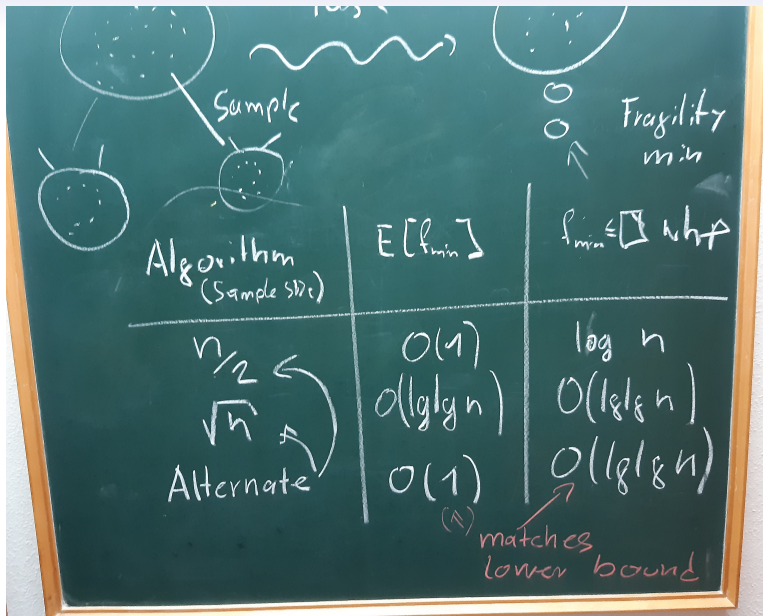 Sample
Fragility
min
Algorithm
(Sample size)
E[f_min]
f_min ≤ □ whp
n/2
O(1)
log n
√n
O(lglg n)
O(lglg n)
Alternate
O(1)
O(lglg n)
matches
lower bound